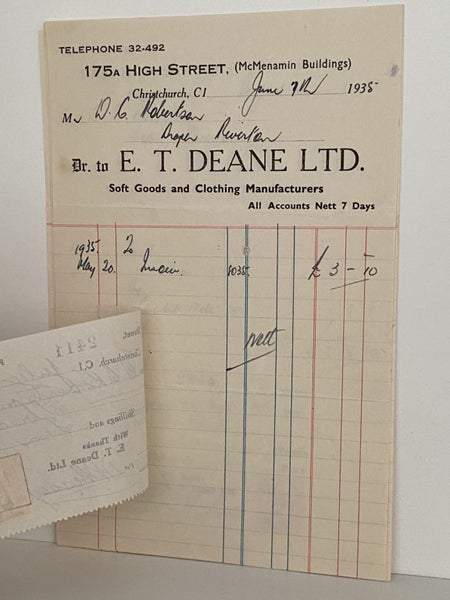 TELEPHONE 32-492
175A HIGH STREET, (McMenamin Buildings)
Christchurch, C.1 June 7th 1935
Mr D. C. Robertson
Draper Riverton
Dr. to E. T. DEANE LTD.
Soft Goods and Clothing Manufacturers
All Accounts Nett 7 Days
1935
May 20. To Invoice 1035 £ 3 - 10
nett
Street,
2411
Christchurch, C.1
Shillings and
With Thanks
E. T. Deane Ltd.